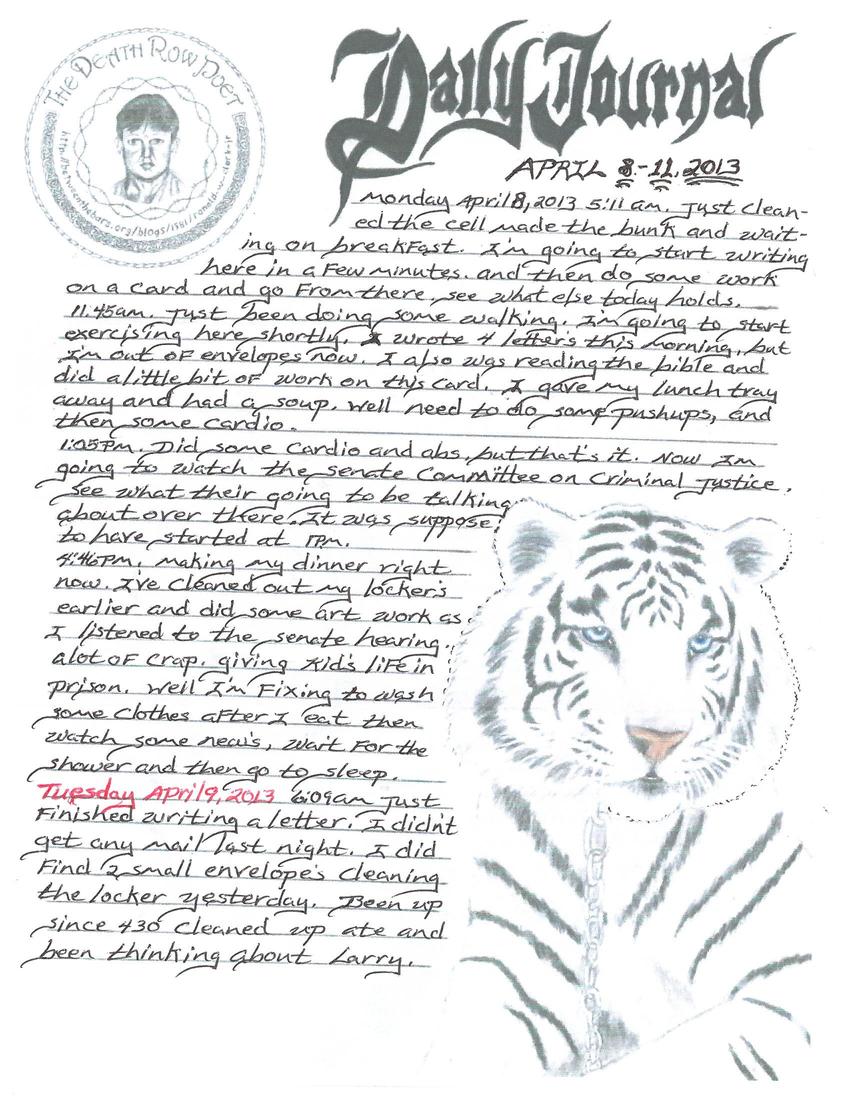 THE DEATH ROW POET
http://betweenthebars.org/blogs/1581/ronald-w-clark-jr
Daily Journal
APRIL 8-11, 2013
Monday April 8, 2013 5:11 am. Just clean-
ed the cell made the bunk and wait-
ing on breakfast. I'm going to start writing
here in a few minutes. and then do some work
on a card and go from there, see what else today holds.
11:45am. Just been doing some walking. I'm going to start
exercising here shortly. I wrote 4 letter's this morning, but
I'm out of envelopes now. I also was reading the bible and
did a little bit of work on this card. I gave my lunch tray
away and had a soup. Well need to do some pushups, and
then some cardio.
1:05pm. Did some cardio and abs, but that's it. Now I'm
going to watch the senate Committee on Criminal Justice,
see what their going to be talking
about over there. It was suppose
to have started at 1pm.
4:46pm, making my dinner right
now. I've cleaned out my locker's
earlier and did some art work as
I listened to the senate hearing,
alot of crap. giving Kid's life in
prison. Well I'm Fixing to wash
some clothes after I eat then
watch some new's, wait for the
shower and then go to sleep.
Tuesday April 9, 2013 6:09am Just
finished writing a letter. I didn't
get any mail last night. I did
find 2 small envelope's cleaning
the locker yesterday. Been up
since 430 cleaned up ate and
been thinking about Larry.